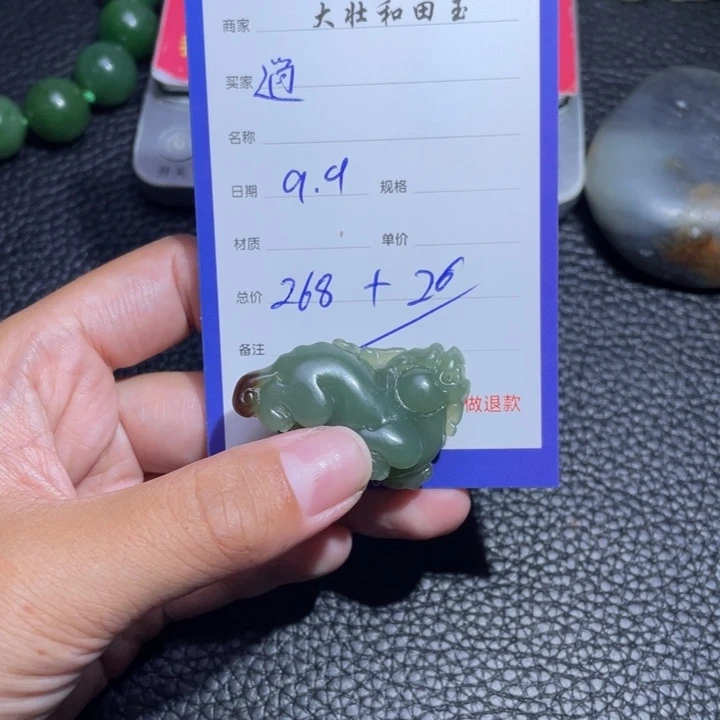 商家 大壮和田玉
买家
名称
日期 9.9 规格
材质 单价
总价 268 + 26
备注
做退款
开关